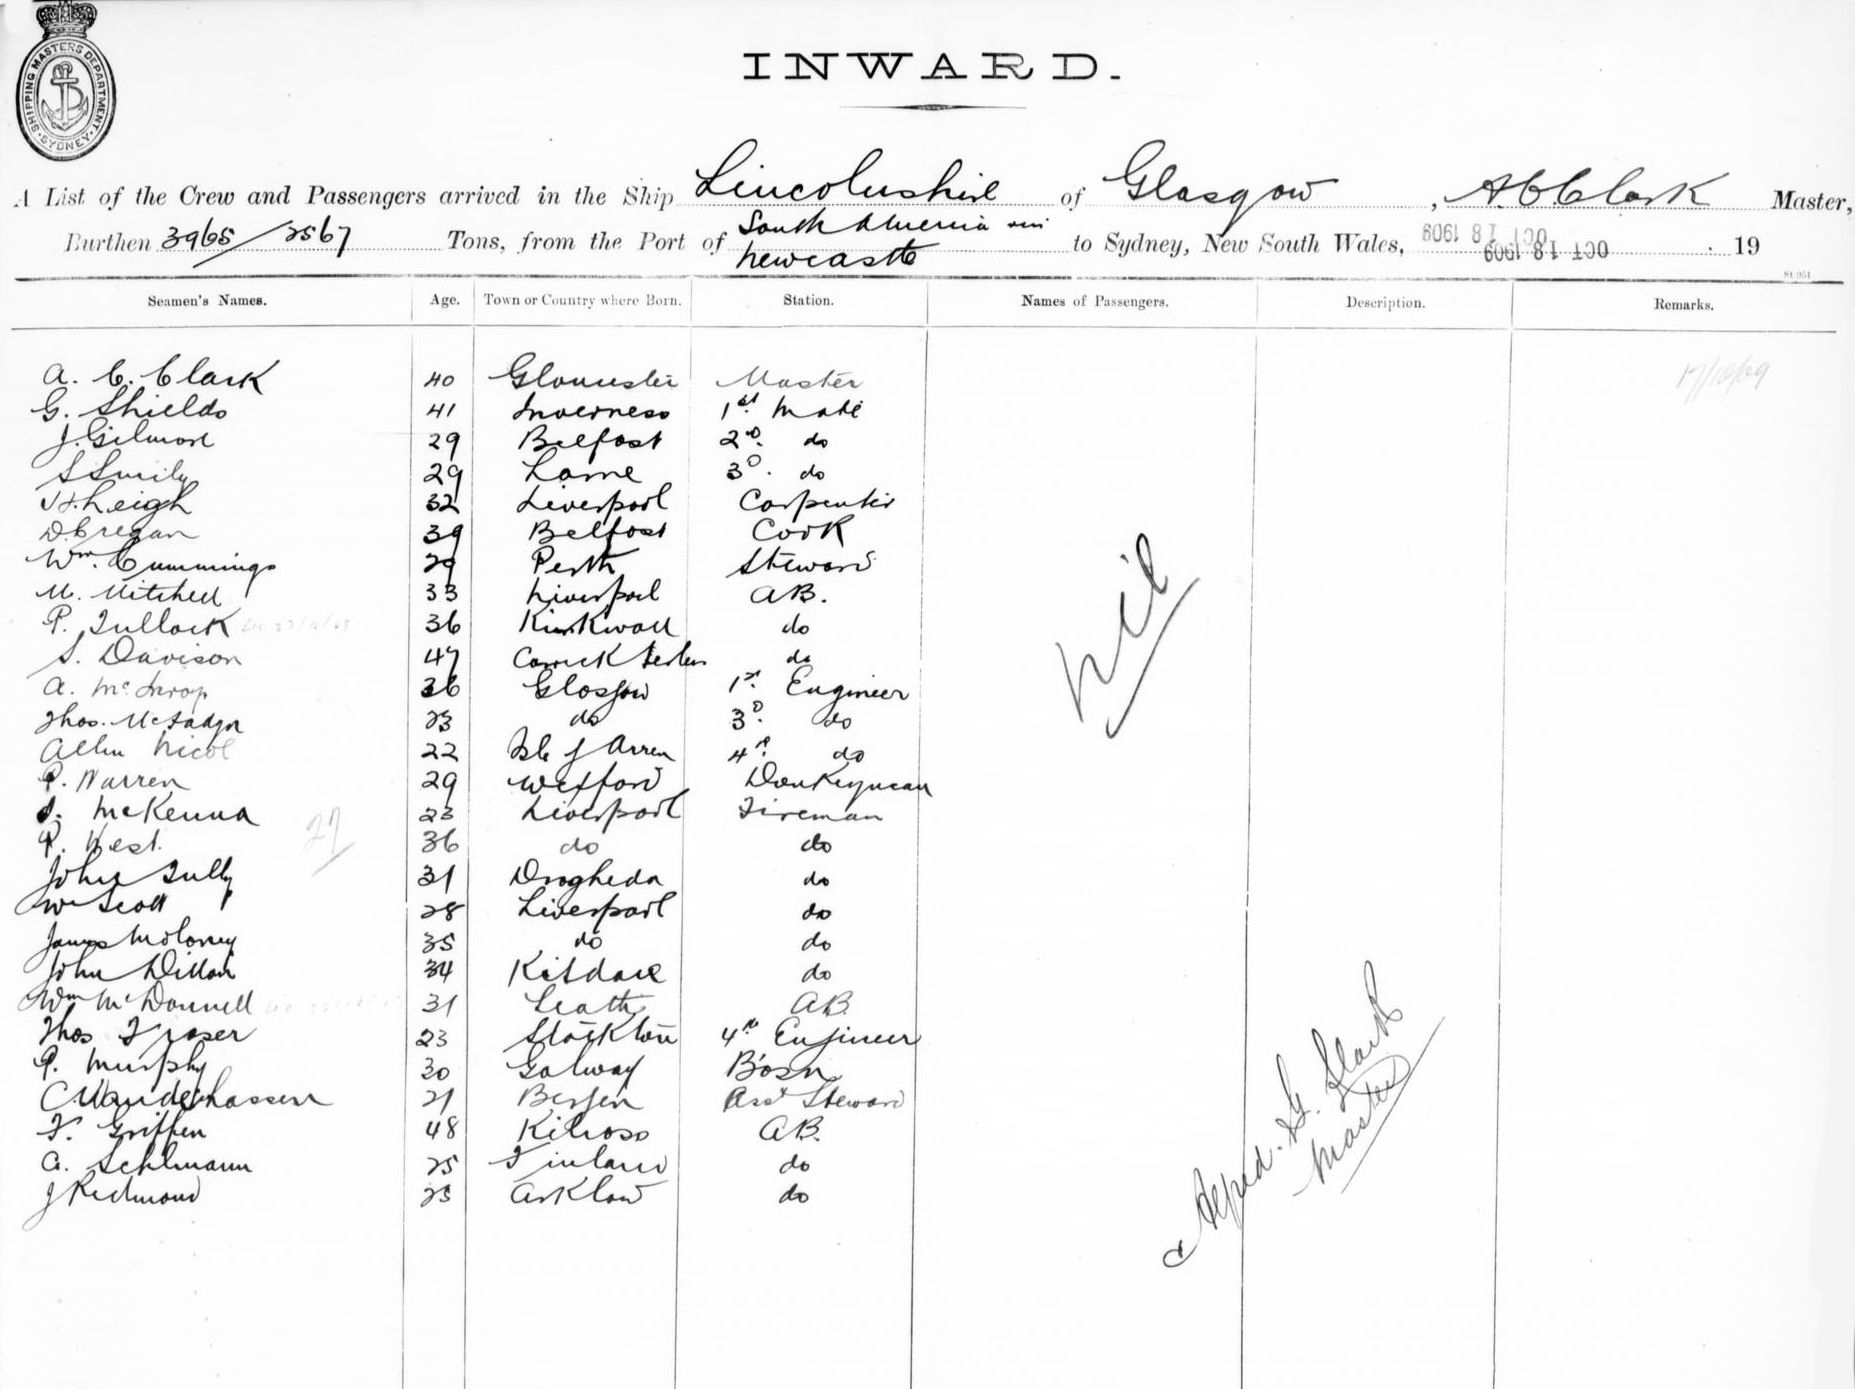 SHIPPING MASTERS DEPARTMENT. SYDNEY
INWARD.
A List of the Crew and Passengers arrived in the Ship Lincolnshire of Glasgow, A. C. Clark Master,
Burthen 3965/2567 Tons, from the Port of South America via Newcastle to Sydney, New South Wales, OCT 18 1909 OCT 18 1909 19
St 951
Seamen's Names. Age. Town or Country where Born. Station. Names of Passengers. Description. Remarks.
17/10/09
A. C. Clark 40 Gloucester Master
G. Shields 41 Inverness 1st Mate
J. Gilmore 29 Belfast 2nd do
S Smily 29 Larne 3d. do
H. Leigh 32 Liverpool Carpenter
D. Cregan 39 Belfast Cook
Wm. Cummings 29 Perth Steward
M. Mitchell 33 Liverpool AB.
P. Tullock 36 Kirkwall do
S. Davison 47 Carrick do
A. 36 Glasgow 1st. Engineer
Thos. McFadyn 23 do 3d. do
Allen Nicol 22 Isle of Arren 4th. do
P. Warren 29 Wexford Donkeyman
McKenna 23 Liverpool Fireman
P. West. 36 do do
27
John Tully 31 Drogheda do
Wm Scott 28 Liverpool do
James Moloney 35 do do
John Dillon 34 Kildare do
Wm McDonnell 31 AB.
Thos Fraser 23 Stockton 4th Engineer
P. Murphy 30 Galway Bosn
C Vanderhassen 21 Bergen Asst Steward
F. Griffen 48 AB.
G. Sehlmann 25 Finland do
J Redmond 23 Arklow do
Nil
Alfred. G. Clark
Master